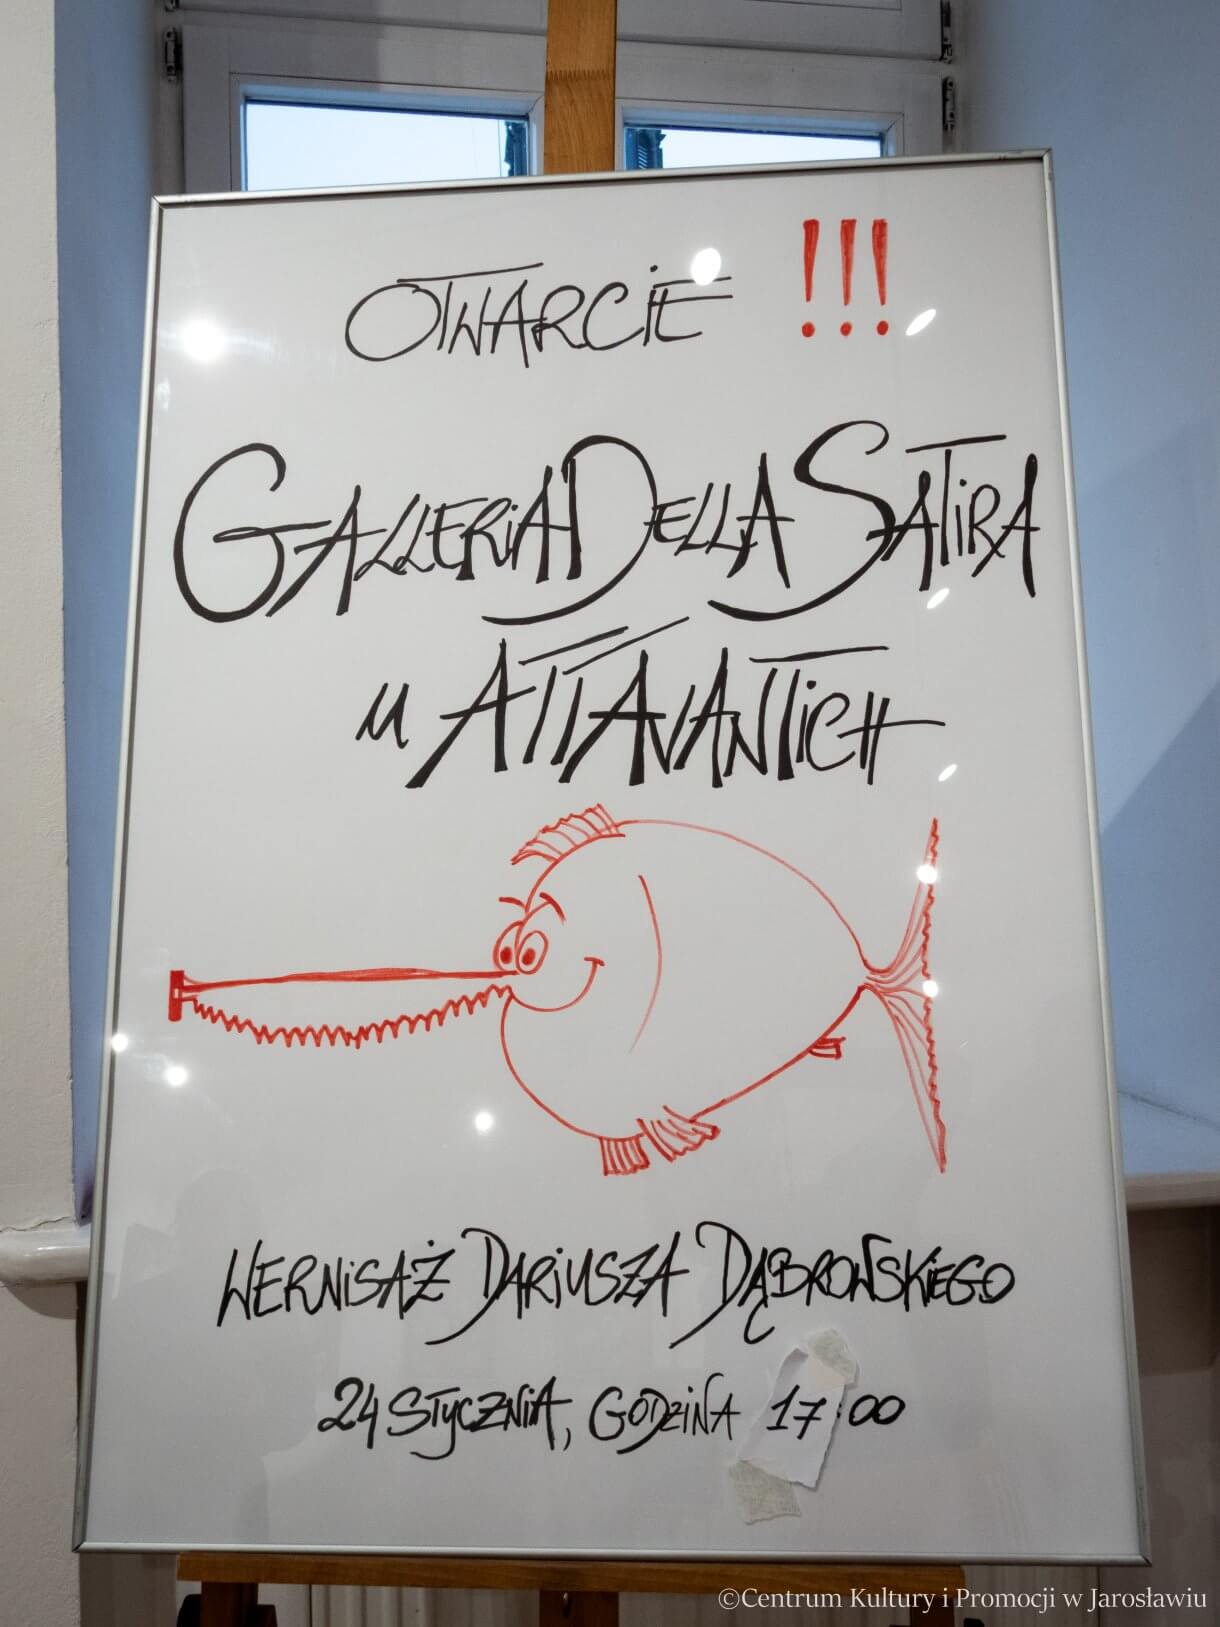 OTWARCIE !!!
GALLERIA DELLA SATIRA
u ATTAVANTICH
WERNISAŻ DARIUSZA DĄBROWSKIEGO
24 STYCZNIA, GODZINA 17:00
©Centrum Kultury i Promocji w Jarosławiu